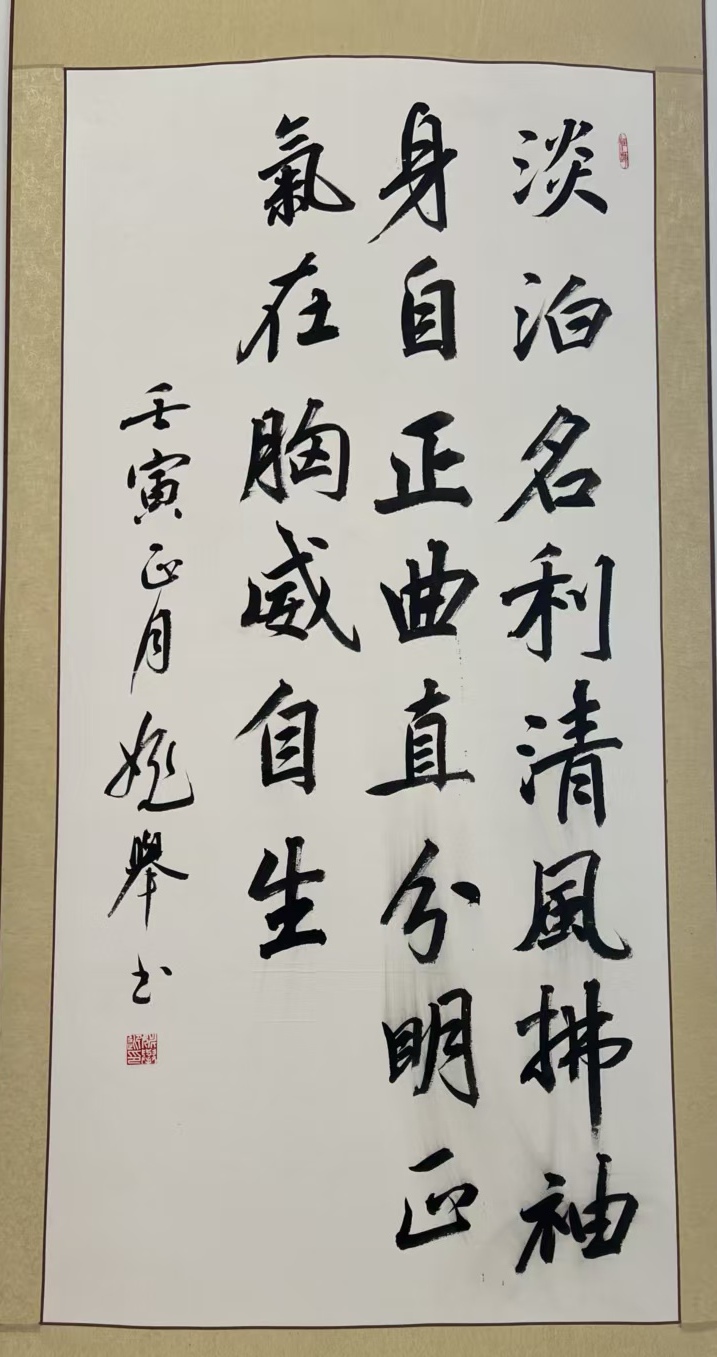 淡泊名利清風拂袖
身自正曲直分明正
氣在胸威自生
壬寅正月姚舉书